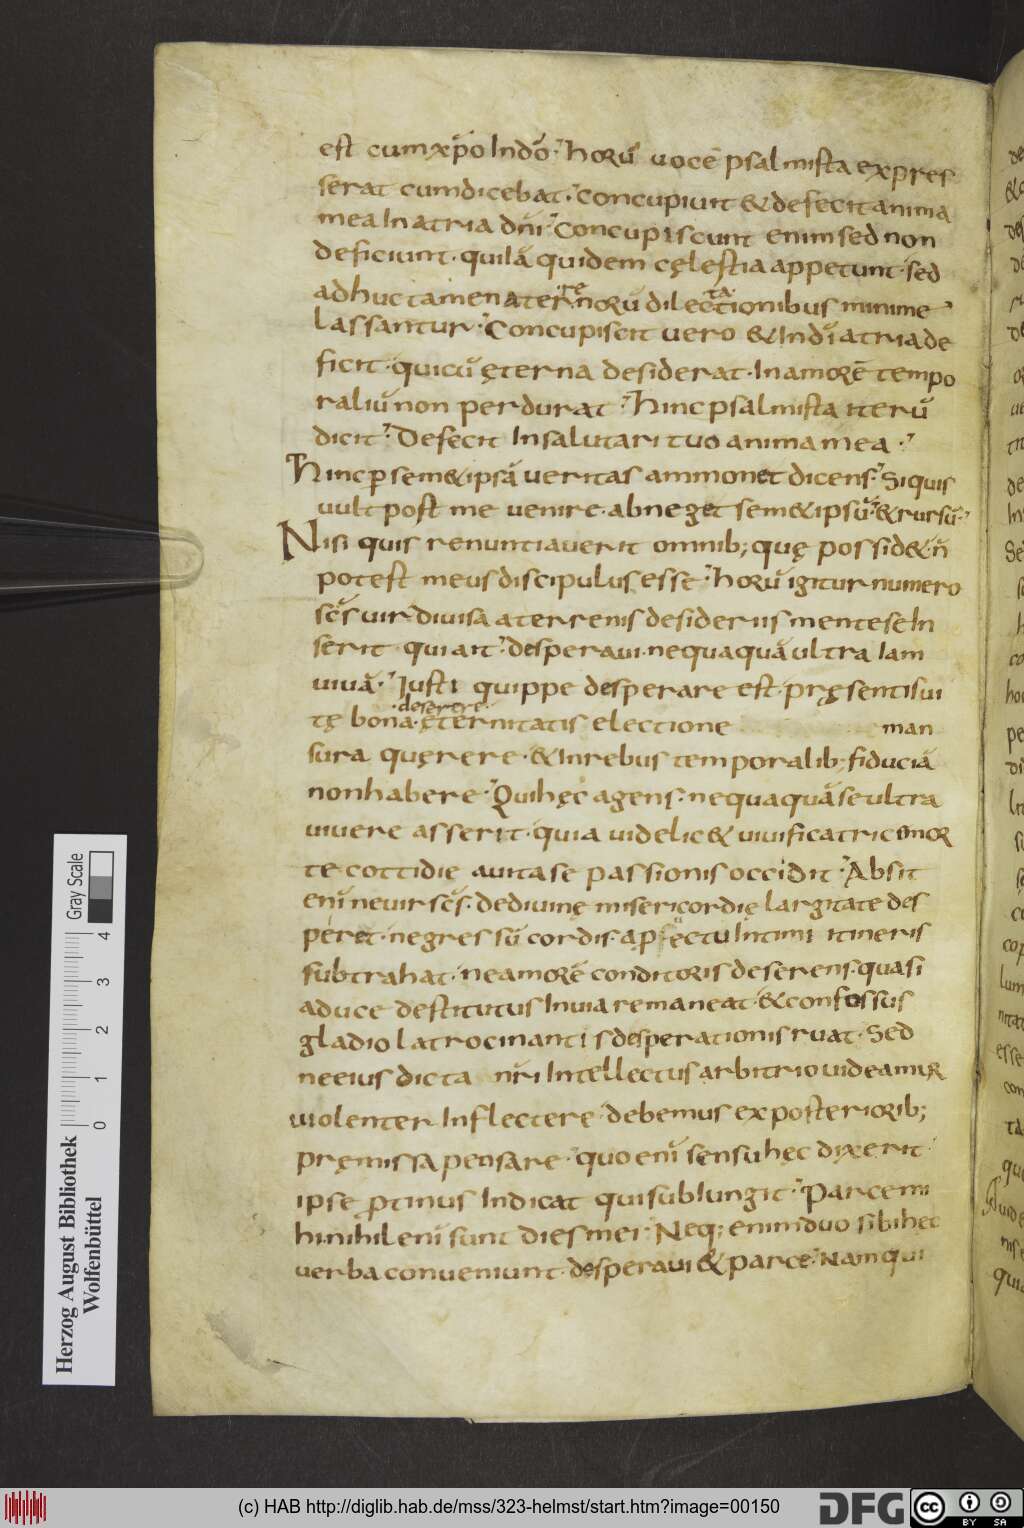 est cum xp̄o In dō. horū uocē psalmista expres
serat cum dicebat. concupiuit & defecit anima
mea In atria dn̄i. Concupiscunt enim sed non
deficiunt. qui iā quidem cęlestia appetunt. sed
adhuc tamen a ternorū dilectionibus minime
lassantur. Concupiscit uero & In dī atria de
ficit. qui cū ęterna desiderat. In amorē tempo
raliū non perdurat. hinc psalmista iterū
dicit. Defecit In salutari tuo anima mea.
hinc ꝑ sem&ipsā ueritas ammonet dicens. Si quis
uult post me uenire. abneget sem&ipsū. & rursū.
Nisi quis renuntiauerit omnib; quę possid& n̄
potest meus discipulus esse. horū igitur numero
sc̄s uir diuisa a terrenis desideriis mente se In
serit qui ait. desperaui. nequaquā ultra Iam
uiuā. Iusti quippe desperare est. pręsentis ui
deserere
tę bona. ęternitatis electione man
sura quęrere. & In rebus temporalib; fiduciā
non habere. Qui hęc agens. nequaquā se ultra
uiuere asserit. quia uidelic& uiuificatrice mor
te cottidie a uita se passionis occidit. Absit
enī ne uir sc̄s. de diuinę misericordię largitate des
peret. ne gressū cordis. a Intimi itineris
subtrahat. ne amorē conditoris deserens. quasi
a duce destitutus In uia remaneat. & confossus
gladio latrocinantis desperationis ruat. Sed
ne eius dicta nr̄i Intellectus arbitrio uideamur
uiolenter Inflectere. debemus ex posteriorib;
pręmissa pensare. quo enī sensu hęc dixerit
ipse ꝓtinus Indicat qui subIungit. Parce mi
hi nihil enī sunt dies mei. Neq; enim duo sibi hęc
uerba conueniunt. desperaui & parce. Nam qui
Herzog August Bibliothek
Wolfenbüttel
Gray Scale
0 1 2 3 4
(c) HAB http://diglib.hab.de/mss/323-helmst/start.htm?image=00150
DFG
cc BY SA